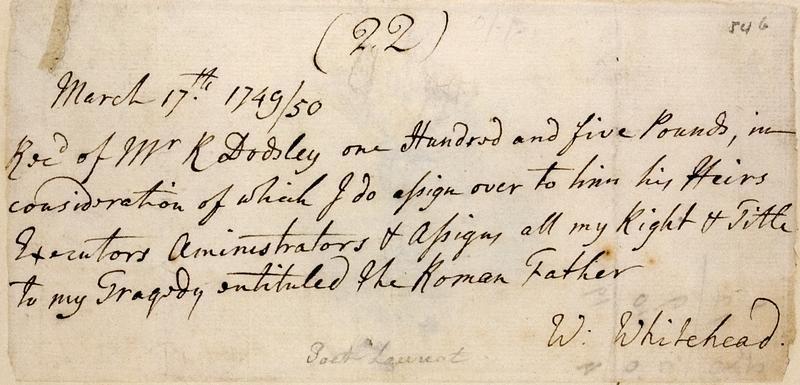 (22)
546
March 17th. 1749/50
Rec'd of Mr R Dodsley one Hundred and five Pounds, in
consideration of which I do assign over to him his Heirs
Executors Aministrators & Assigns all my Right & Title
to my Tragedy entituled the Roman Father
W: Whitehead.
Poet Laureat